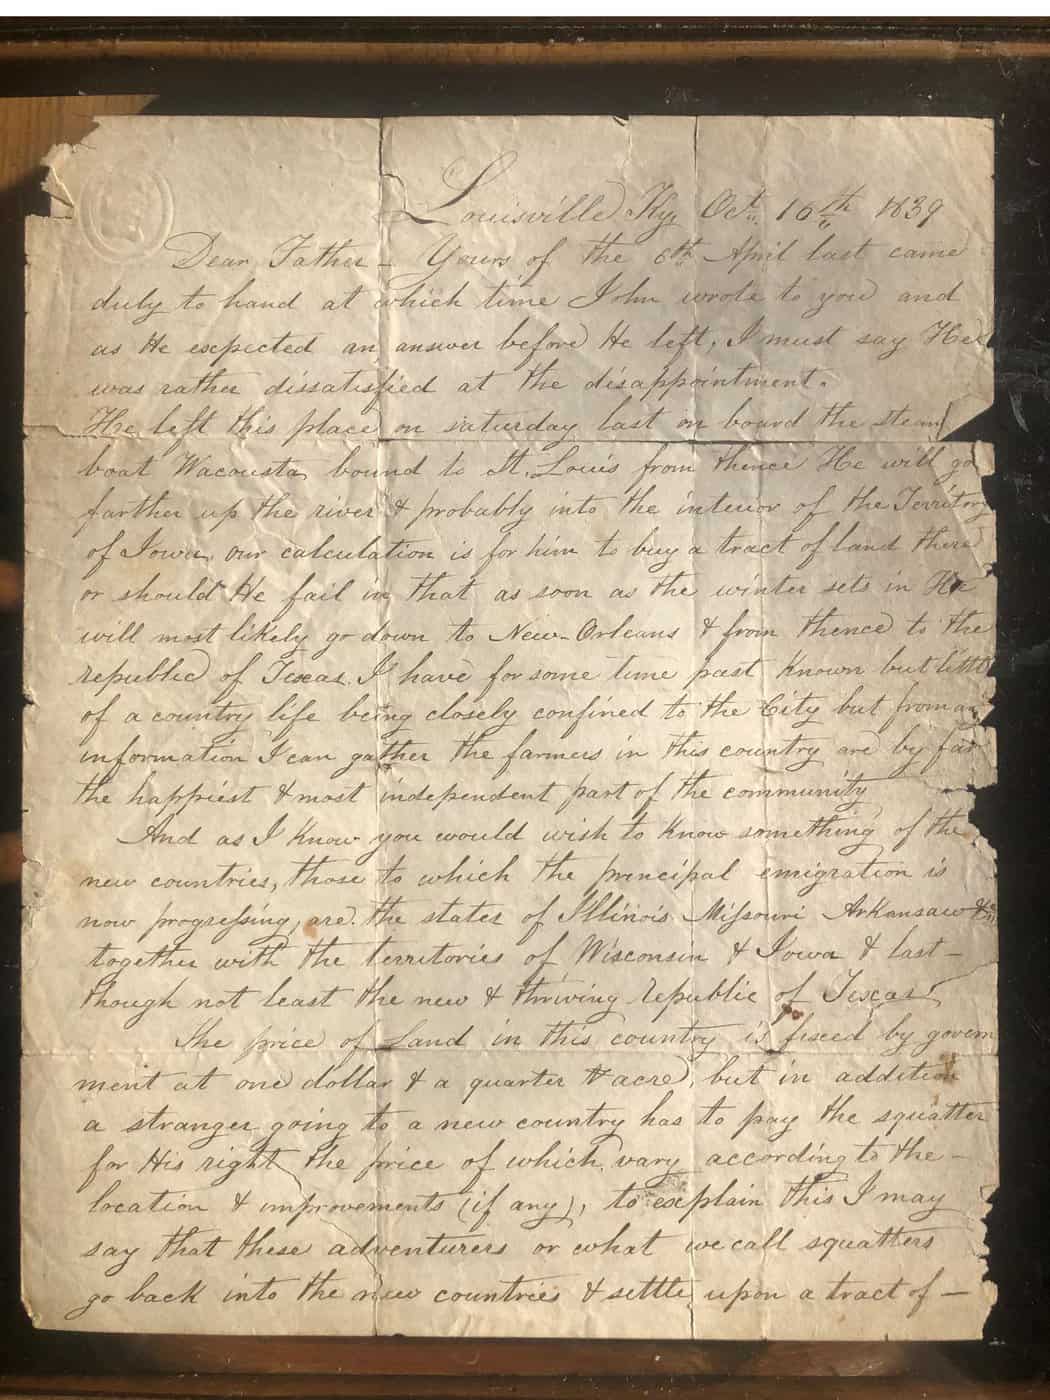 Louisville Ky Oct. 16th 1839
Dear Father – Yours of the 6th April last came
duly to hand at which time John wrote to you and
as He expected an answer before He left, I must say He
was rather dissatisfied at the disappointment.
He left this place on saturday last on board the steam
boat Wacousta bound to St. Louis from thence He will go
farther up the river & probably into the interior of the Territory
of Iowa, our calculation is for him to buy a tract of land there
or should He fail in that as soon as the winter sets in He
will most likely go down to New-Orleans & from thence to the
republic of Texas. I have for some time past Known but little
of a country life being closely confined to the City but from any
information I can gather the farmers in this country are by far
the happiest & most independent part of the community
And as I Know you would wish to Know something of the
new countries, those to which the principal emigration is
now progressing, are. the states of Illinois Missouri Arkansaw &c
together with the territories of Wisconsin & Iowa & last –
though not least the new & thriving republic of Texas
The price of Land in this country is fixed by govern
ment at one dollar & a quarter ⅌ acre, but in addition
a stranger going to a new country has to pay the squatter
for His right the price of which vary according to the –
location & improvements (if any), to explain this I may
say that these adventurers or what we call squatters
go back into the new countries & settle upon a tract of –